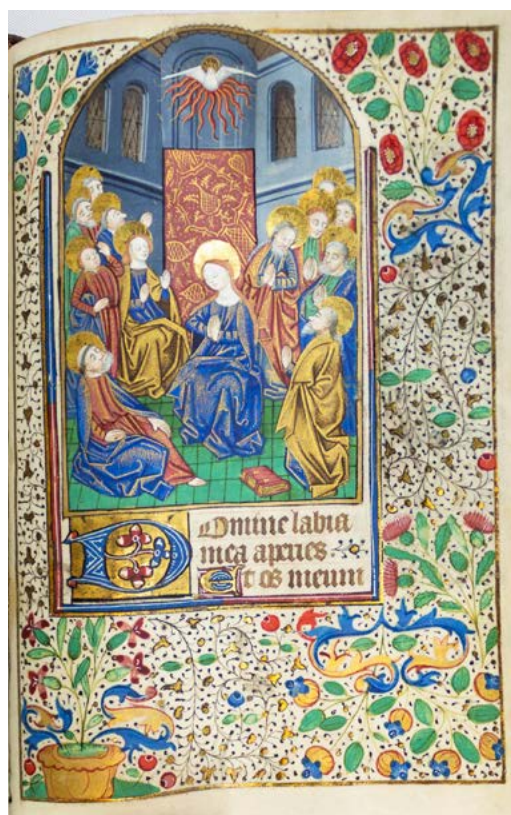 Domine labia
mea apries
Et os meum